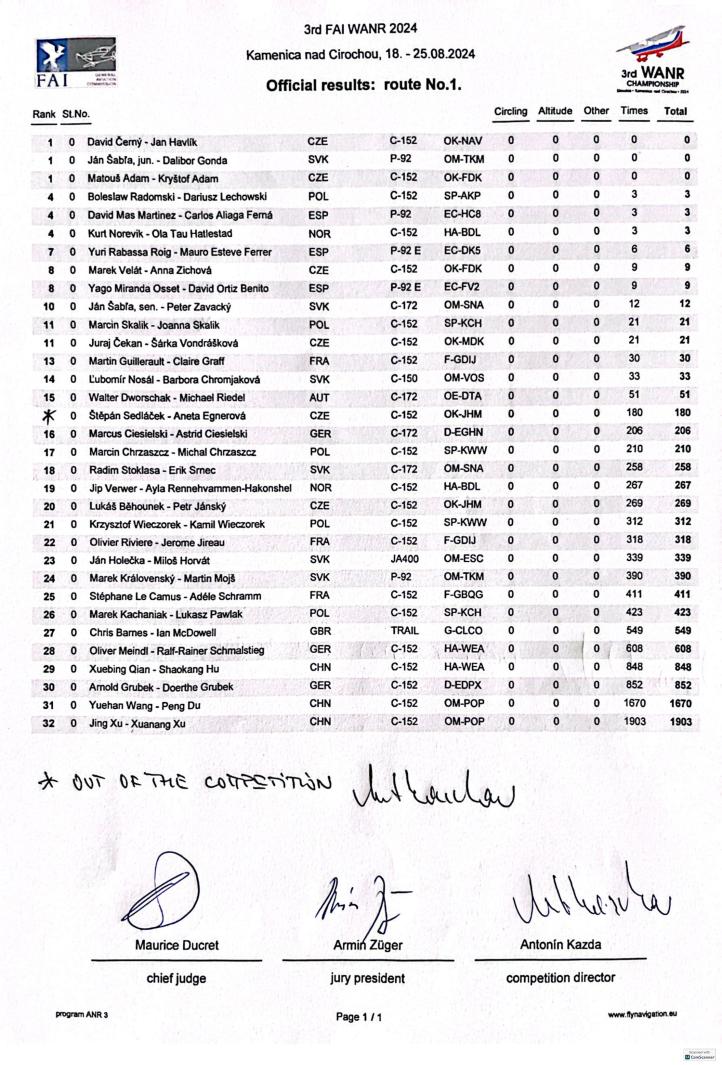 3rd FAI WANR 2024
Kamenica nad Cirochou, 18. - 25.08.2024
Official results: route No.1.
FAI
GENERAL AVIATION COMMISSION
3rd WANR
CHAMPIONSHIP
Slovakia - Kamenica nad Cirochou - 2024
Rank St.No. Circling Altitude Other Times Total
1 0 David Černý - Jan Havlík CZE C-152 OK-NAV 0 0 0 0 0
1 0 Ján Šabľa, jun. - Dalibor Gonda SVK P-92 OM-TKM 0 0 0 0 0
1 0 Matouš Adam - Kryštof Adam CZE C-152 OK-FDK 0 0 0 0 0
4 0 Boleslaw Radomski - Dariusz Lechowski POL C-152 SP-AKP 0 0 0 3 3
4 0 David Mas Martinez - Carlos Aliaga Ferná ESP P-92 EC-HC8 0 0 0 3 3
4 0 Kurt Norevik - Ola Tau Hatlestad NOR C-152 HA-BDL 0 0 0 3 3
7 0 Yuri Rabassa Roig - Mauro Esteve Ferrer ESP P-92 E EC-DK5 0 0 0 6 6
8 0 Marek Velát - Anna Zichová CZE C-152 OK-FDK 0 0 0 9 9
8 0 Yago Miranda Osset - David Ortiz Benito ESP P-92 E EC-FV2 0 0 0 9 9
10 0 Ján Šabľa, sen. - Peter Zavacký SVK C-172 OM-SNA 0 0 0 12 12
11 0 Marcin Skalik - Joanna Skalik POL C-152 SP-KCH 0 0 0 21 21
11 0 Juraj Čekan - Šárka Vondrášková CZE C-152 OK-MDK 0 0 0 21 21
13 0 Martin Guillerault - Claire Graff FRA C-152 F-GDIJ 0 0 0 30 30
14 0 Ľubomír Nosál - Barbora Chromjaková SVK C-150 OM-VOS 0 0 0 33 33
15 0 Walter Dworschak - Michael Riedel AUT C-172 OE-DTA 0 0 0 51 51
* 0 Štěpán Sedláček - Aneta Egnerová CZE C-152 OK-JHM 0 0 0 180 180
16 0 Marcus Ciesielski - Astrid Ciesielski GER C-172 D-EGHN 0 0 0 206 206
17 0 Marcin Chrzaszcz - Michal Chrzaszcz POL C-152 SP-KWW 0 0 0 210 210
18 0 Radim Stoklasa - Erik Srnec SVK C-172 OM-SNA 0 0 0 258 258
19 0 Jip Verwer - Ayla Rennehvammen-Hakonshel NOR C-152 HA-BDL 0 0 0 267 267
20 0 Lukáš Běhounek - Petr Jánský CZE C-152 OK-JHM 0 0 0 269 269
21 0 Krzysztof Wieczorek - Kamil Wieczorek POL C-152 SP-KWW 0 0 0 312 312
22 0 Olivier Riviere - Jerome Jireau FRA C-152 F-GDIJ 0 0 0 318 318
23 0 Ján Holečka - Miloš Horvát SVK JA400 OM-ESC 0 0 0 339 339
24 0 Marek Královenský - Martin Mojš SVK P-92 OM-TKM 0 0 0 390 390
25 0 Stéphane Le Camus - Adéle Schramm FRA C-152 F-GBQG 0 0 0 411 411
26 0 Marek Kachaniak - Lukasz Pawlak POL C-152 SP-KCH 0 0 0 423 423
27 0 Chris Barnes - Ian McDowell GBR TRAIL G-CLCO 0 0 0 549 549
28 0 Oliver Meindl - Ralf-Rainer Schmalstieg GER C-152 HA-WEA 0 0 0 608 608
29 0 Xuebing Qian - Shaokang Hu CHN C-152 HA-WEA 0 0 0 848 848
30 0 Arnold Grubek - Doerthe Grubek GER C-152 D-EDPX 0 0 0 852 852
31 0 Yuehan Wang - Peng Du CHN C-152 OM-POP 0 0 0 1670 1670
32 0 Jing Xu - Xuanang Xu CHN C-152 OM-POP 0 0 0 1903 1903
* OUT OF THE COMPETITION
Maurice Ducret Armin Züger Antonín Kazda
chief judge jury president competition director
program ANR 3 Page 1 / 1 www.flynavigation.eu
Scanned with
CamScanner